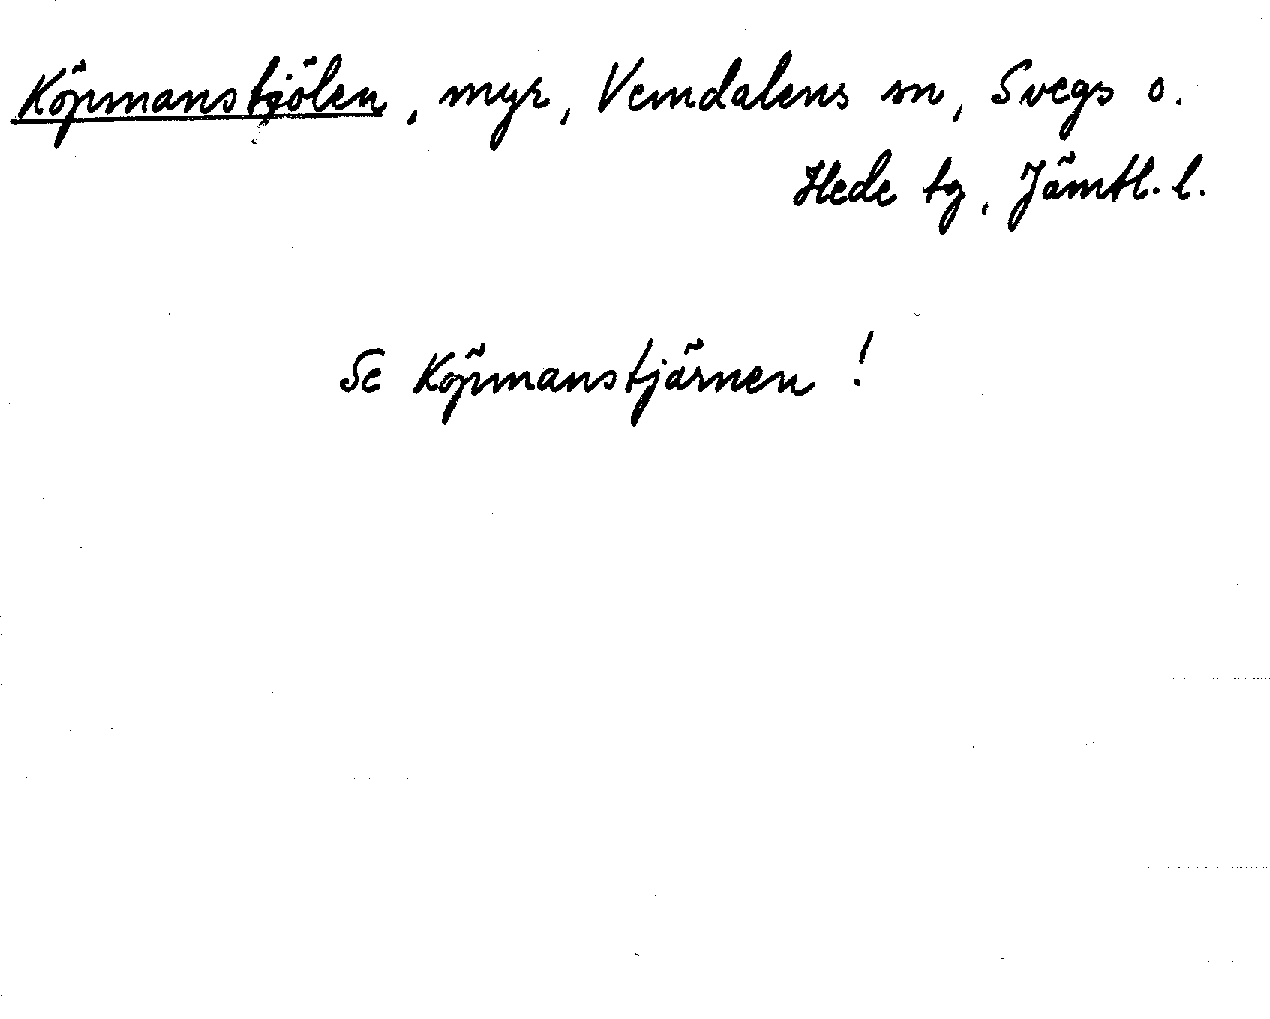 Köpmanskjölen, myr, Vemdalens sn, Svegs o.
Hede tg, Jämtl. l.
Se Köpmanstjärnen!